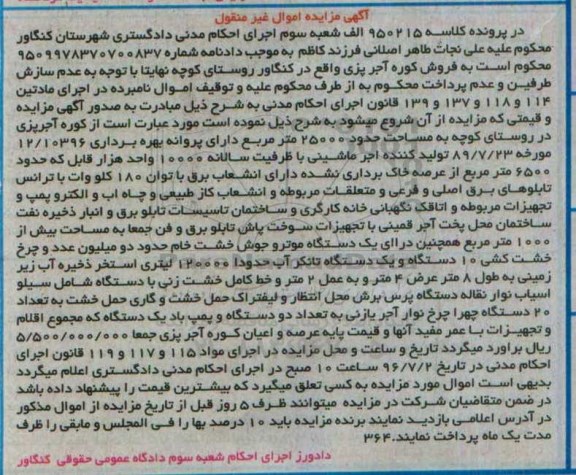 آگهی مزایده اموال غیر منقول
در پرونده کلاسه ۹۵۰۲۱۵ الف شعبه سوم اجرای احکام مدنی دادگستری شهرستان کنگاور
محکوم علیه علی نجات طاهر اصلانی فرزند کاظم به موجب دادنامه شماره ۹۵۰۹۹۷۸۳۷۰۷۰۰۸۳۷
محکوم است به فروش کوره آجر پزی واقع در کنگاور روستای کوچه نهایتا با توجه به عدم سازش
طرفین و عدم پرداخت محکوم به از طرف محکوم علیه و توقیف اموال نامبرده در اجرای مادتین
۱۱۴ و ۱۱۸ و ۱۳۷ و ۱۳۹ قانون اجرای احکام مدنی به شرح ذیل مبادرت به صدور آگهی مزایده
و قیمتی که مزایده از آن شروع میشود به شرح ذیل نموده است مورد عبارت است از کوره آجرپزی
در روستای کوچه به مساحت حدود ۲۵۰۰۰ متر مربع دارای پروانه بهره برداری ۱۲/۱۰۳۹۶
مورخه ۸۹/۷/۲۳ تولید کننده اجر ماشینی با ظرفیت سالانه ۱۰۰۰۰ واحد هزار قابل که حدود
۶۵۰۰ متر مربع از عرصه خاک برداری نشده دارای انشعاب برق با توان ۱۸۰ کلو وات با ترانس
تابلوهای برق اصلی و فرعی و متعلقات مربوطه و انشعاب گاز طبیعی و چاه اب و الکترو پمپ و
تجهیزات مربوطه و اتاقک نگهبانی خانه کارگری و ساختمان تاسیسات تابلو برق و انبار ذخیره نفت
ساختمان محل پخت آجر قمینی با تجهیزات سوخت پاش تابلو برق و فن جمعا به مساحت بیش از
۱۰۰۰ متر مربع همچنین درای یک دستگاه موترو جوش خشت خام حدود دو میلیون عدد و چرخ
خشت کشی ۱۰ دستگاه و یک دستگاه تانکر آب حدودا ۱۲۰۰۰ لیتری استخر ذخیره آب زیر
زمینی به طول ۸ متر عرض ۴ متر و به عمل ۲ متر و خط کامل خشت زنی با دستگاه شامل سیلو
اسیاب نوار نقاله دستگاه پرس برش محل انتظار و لیفتراک حمل خشت و گاری حمل خشت به تعداد
۲۰ دستگاه چهرا چرخ نوار آجر یازنی به تعداد دو دستگاه و پمپ باد یک دستگاه که مجموع اقلام
و تجهیزات با عمر مفید آنها و قیمت پایه عرصه و اعیان کوره آجر پزی جمعا ۵/۵۰۰/۰۰۰/۰۰۰
ریال براورد میگردد تاریخ و ساعت و محل مزایده در اجرای مواد ۱۱۵ و ۱۱۷ و ۱۱۹ قانون اجرای
احکام مدنی در تاریخ ۹۶/۷/۲ ساعت ۱۰ صبح در اجرای احکام مدنی دادگستری اعلام میگردد
بدیهی است اموال مورد مزایده به کسی تعلق میگیرد که بیشترین قیمت را پیشنهاد داده باشد
در ضمن متقاضیان شرکت در مزایده میتوانند ظرف ۵ روز قبل از تاریخ مزایده از اموال مذکور
در آدرس اعلامی بازدید نمایند برنده مزایده باید ۱۰ درصد بها را فی المجلس و مابقی را ظرف
مدت یک ماه پرداخت نمایند.۳۶۴
دادورز اجرای احکام شعبه سوم دادگاه عمومی حقوقی کنگاور